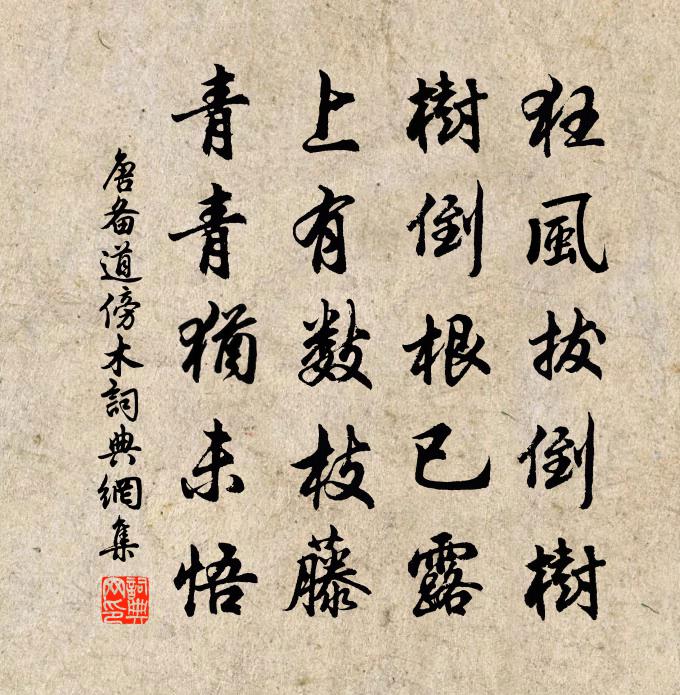 狂風拔倒樹
樹倒根已露
上有數枝藤
青青猶未悟
唐备道傍木詞典網集
詞典網印